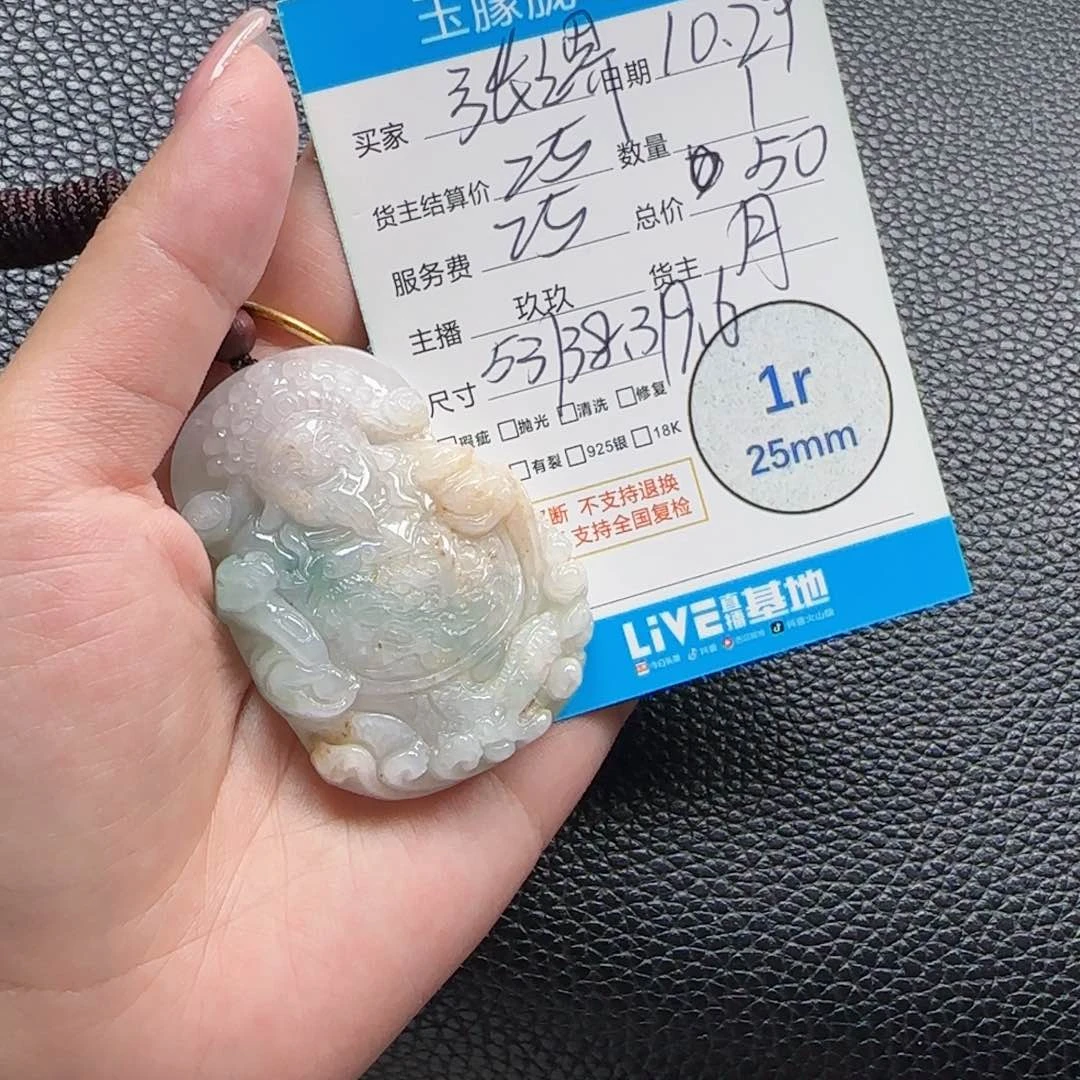 买家 张 日期 10.29
货主结算价 数量 1
服务费 总价 50
主播 玖玖 货主 月
尺寸 53/38.3/9.6
瑕疵 □抛光 □清洗 □修复
□有裂 □925银 □18K
断 不支持退换
支持全国复检
1r
25mm
LiVE直播基地
今日头条 抖音 西瓜视频 抖音火山版